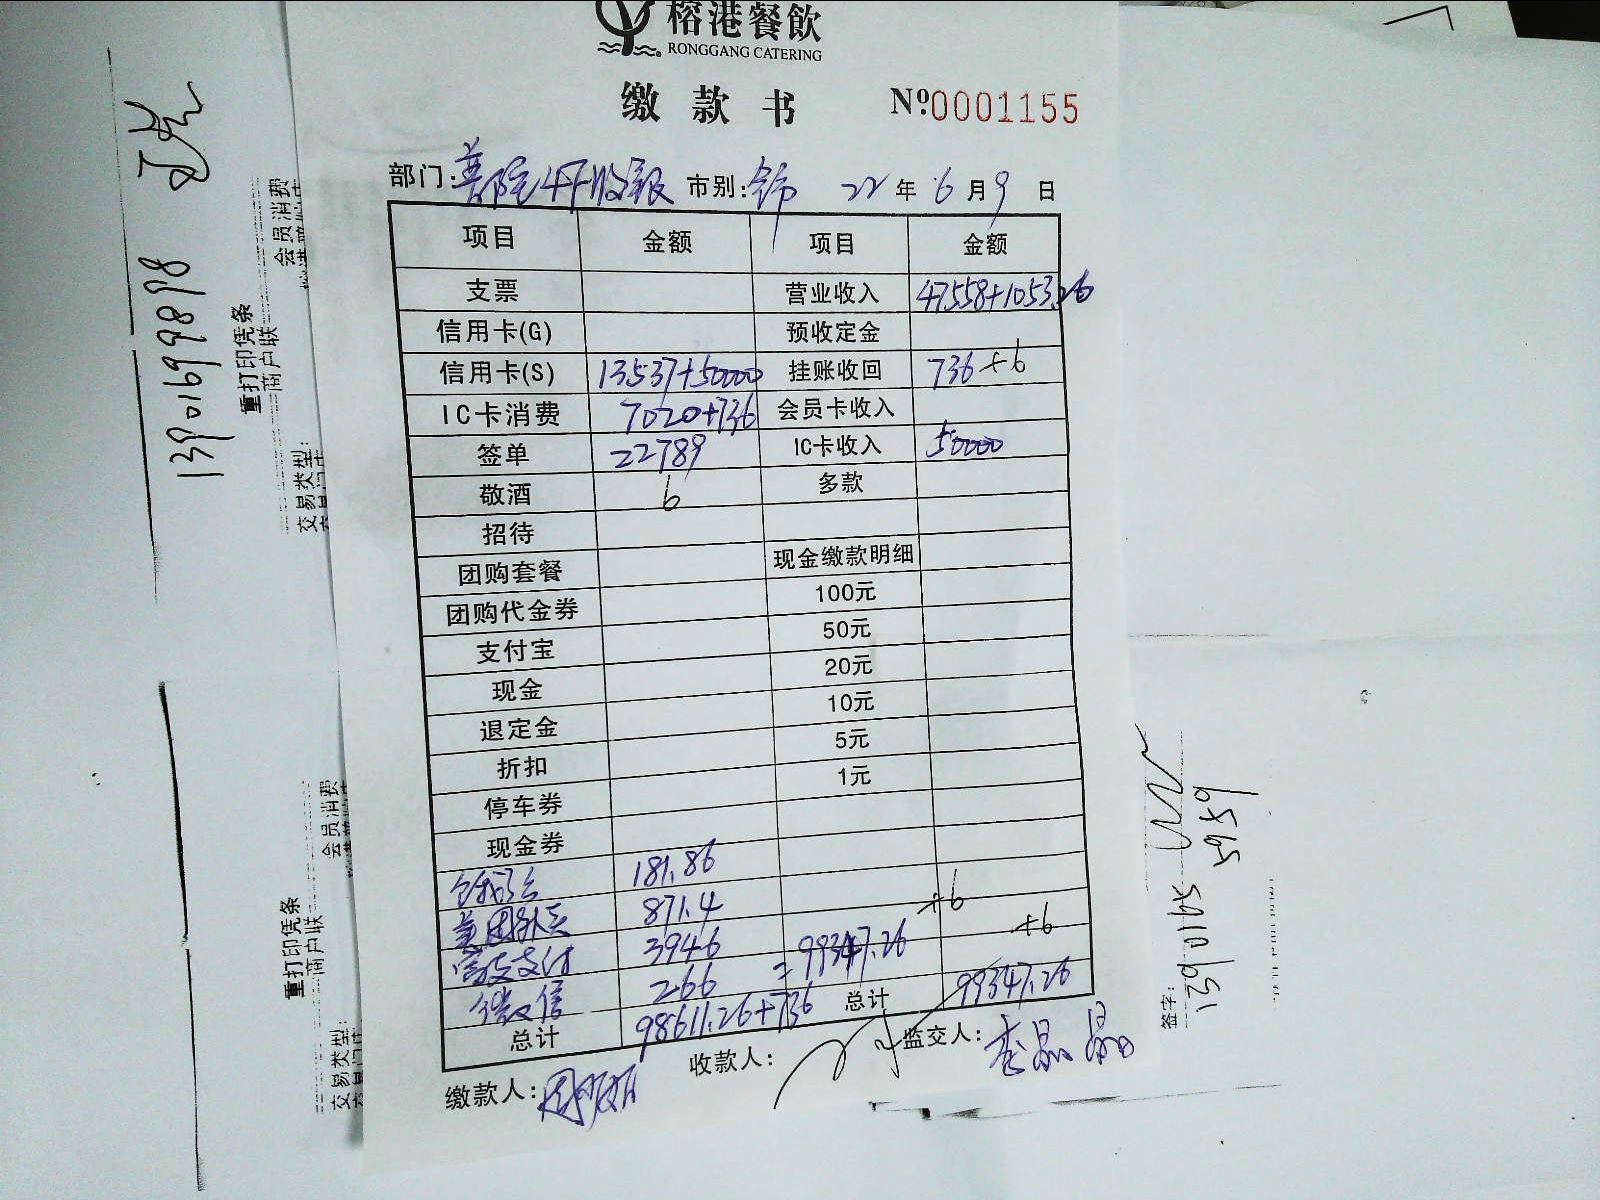 榕港餐飲
RONGGANG CATERING
缴款书 №0001155
部门: 市别: 22年6月9日
项目 金额 项目 金额
支票 营业收入 47558+1053.26
信用卡(G) 预收定金
信用卡(S) 13537+50000 挂账收回 736+6
IC卡消费 7020+736 会员卡收入
签单 22789 IC卡收入 50000
敬酒 6 多款
招待
团购套餐 现金缴款明细
团购代金券 100元
支付宝 50元
现金 20元
退定金 10元
折扣 5元
停车券 1元
现金券
181.86
美团外卖 871.4 +6
支付 3946 =99347.26 +6
微信 266
总计 98611.26+736 总计 99347.26
缴款人: 收款人: 监交人: 李晶晶
13901699898
重打印凭条
商户联
会员消费
交易类型:
重打印凭条
商户联
会员消费
交易类型:
签字:
13901165
5959